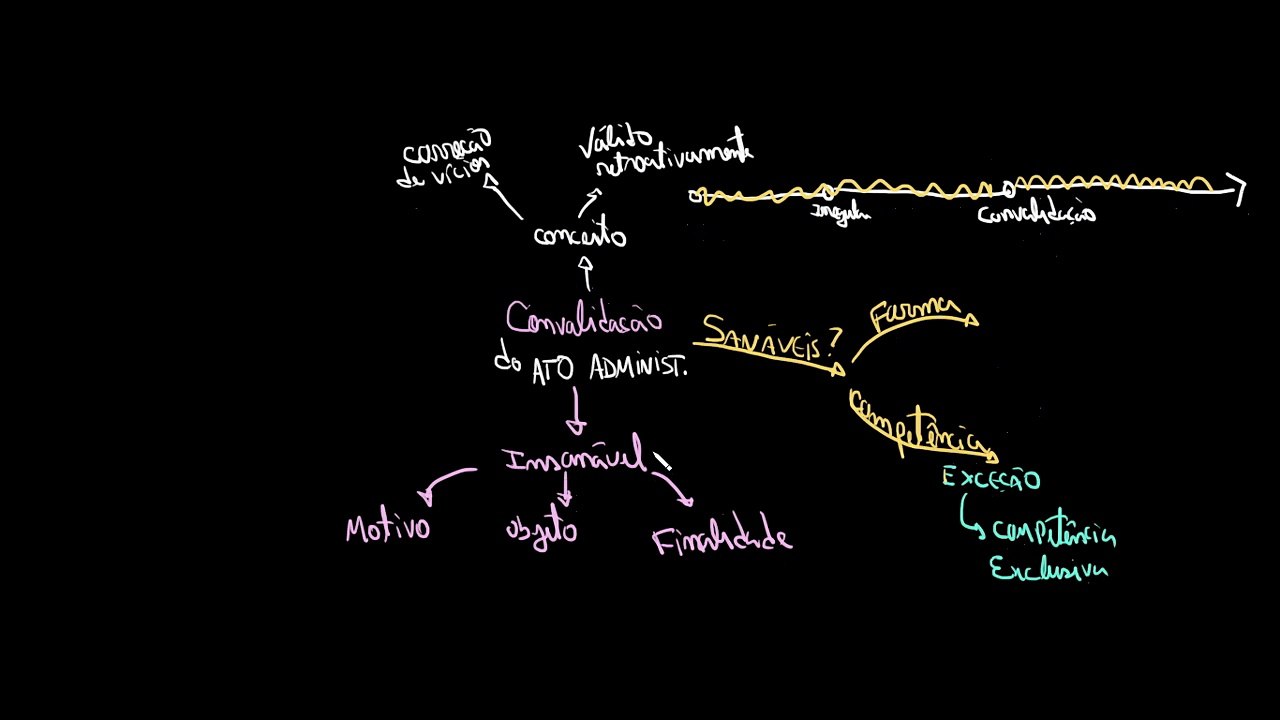 correção
de vícios
Válido
retroativamente
Irregular
Convalidação
conceito
Convalidação
do ATO ADMINIST.
SANÁVEIS?
Forma
Competência
EXCEÇÃO
COMPETÊNCIA
Exclusiva
Insanável
Motivo
objeto
Finalidade